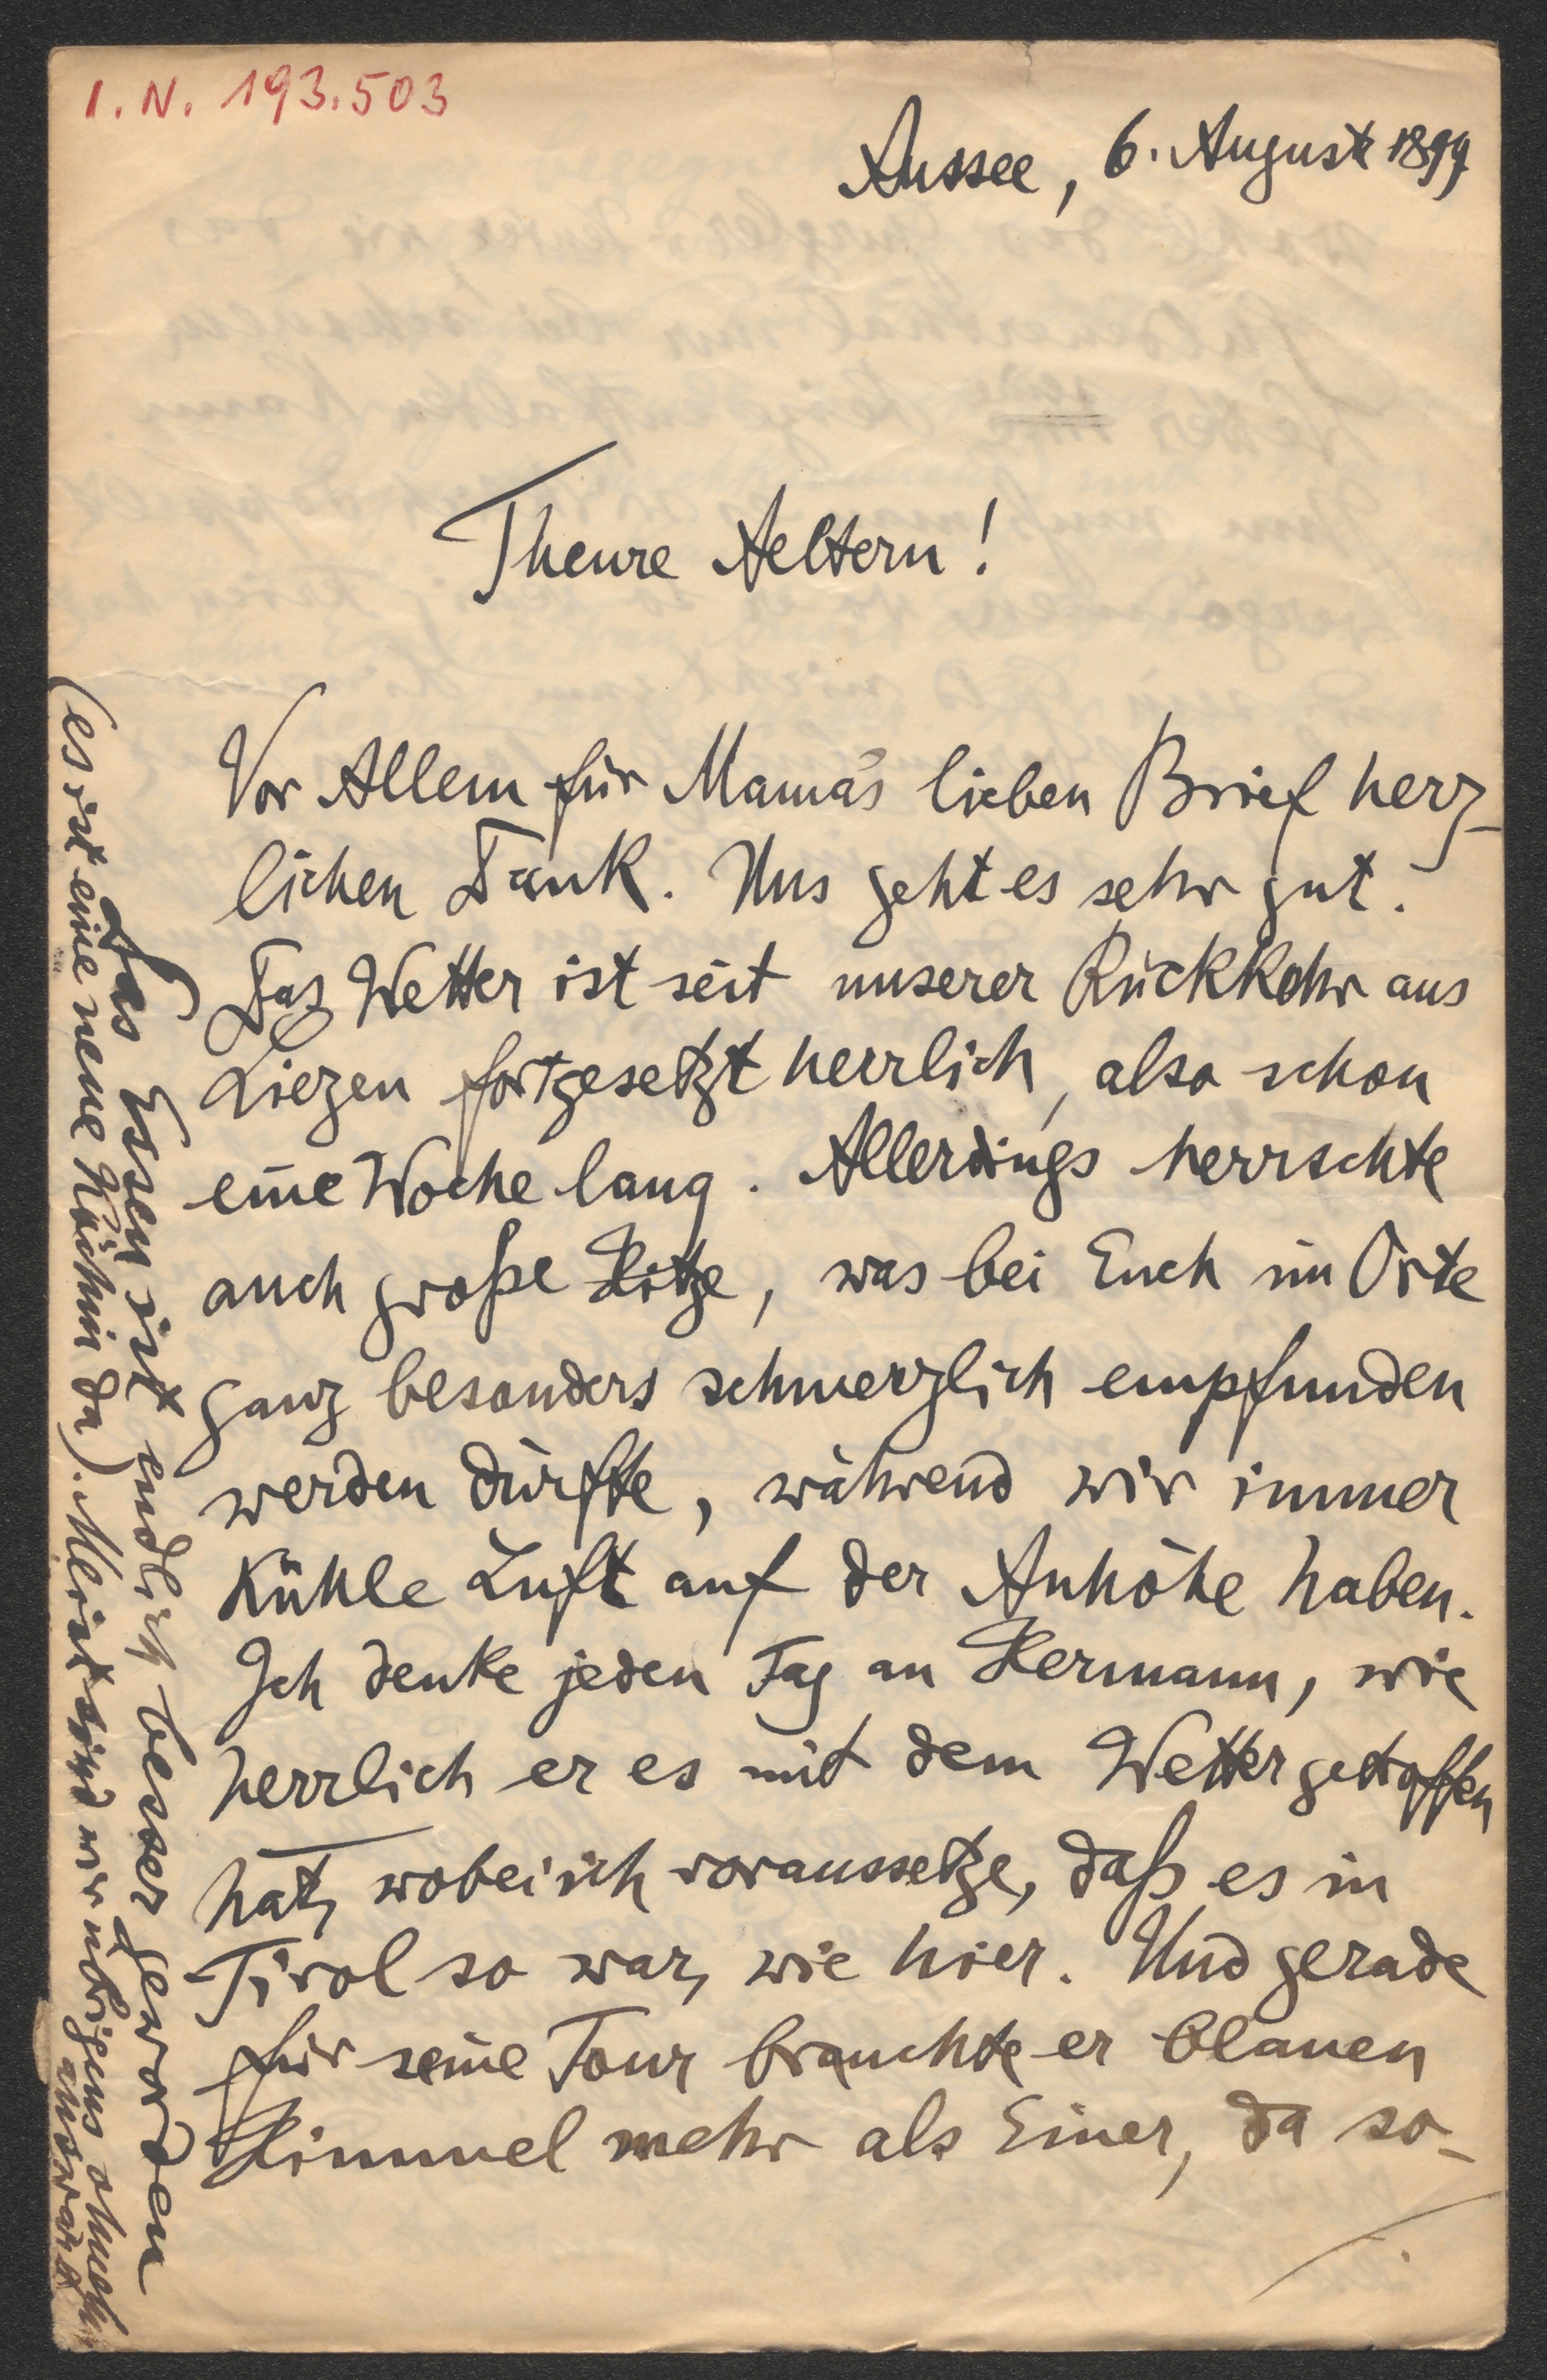 I.N. 193.503
Aussee, 6. August 1899
Theure Aeltern!
Vor Allem für Mama's lieben Brief herz-
lichen Dank. Uns geht es sehr gut.
Das Wetter ist seit unserer Rückkehr aus
Liezen fortgesetzt herrlich, also schon
eine Woche lang. Allerdings herrschte
auch große Hitze, was bei Euch im Orte
ganz besonders schmerzlich empfunden
werden dürfte, während wir immer
kühle Luft auf der Anhöhe haben.
Ich denke jeden Tag an Hermann, wie
herrlich er es mit dem Wetter getroffen
hat, wobei ich voraussetze, daß es in
Tirol so war, wie hier. Und gerade
für seine Tour brauchte er blauen
Himmel mehr als Einer, da so-
Das Essen ist endlich besser geworden
(es ist eine neue Köchin da). Meist sind wir übrigens ohnehin
auswärts